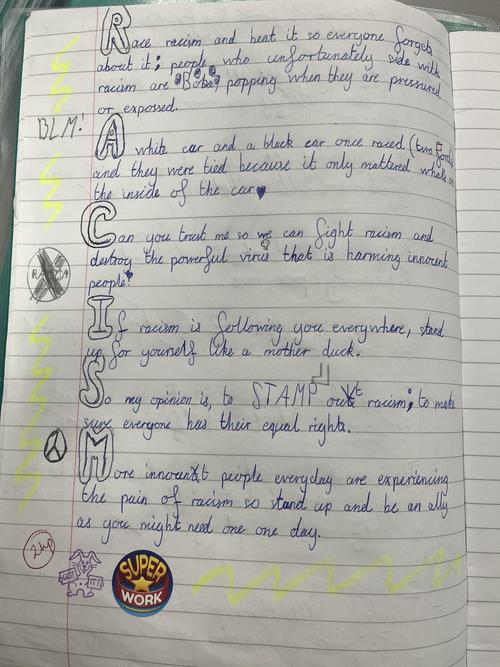 Race racism and beat it so everyone forgets
about it; people who unfortunately side with
racism are Boba popping when they are pressured
or exposed.
BLM!
A white car and a black car once raced (two Fords)
and they were tied because it only mattered whats on
the inside of the car
Can you trust me so we can fight racism and
destroy the powerful virus that is harming innocent
people?
If racism is following you everywhere, stand
up for yourself like a mother duck.
So my opinion is, to STAMP out racism; to make
sure everyone has their equal rights.
More innocent people everyday are experiencing
the pain of racism so stand up and be an ally
as you might need one one day.
2HP
GOT IT!
SUPER
WORK